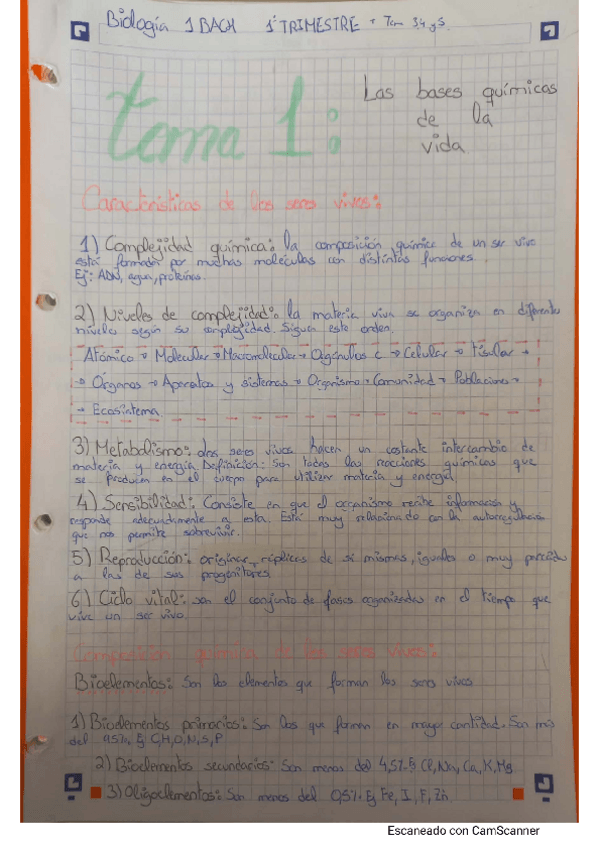 Biología 1 BACH 1º TRIMESTRE + Tem 3,4 y 5.
tema 1:
Las bases químicas
de la
vida
Características de los seres vivos:
1) Complejidad química: la composición química de un ser vivo
está formada por muchas moléculas con distintas funciones.
Ej: ADN, agua, proteínas.
2) Niveles de complejidad: la materia viva se organiza en diferentes
niveles según su complejidad. Siguen este orden.
Atómico → Molecular → Macromolecular → Orgánulos c → Celular → Tisular →
→ Órganos → Aparatos y sistemas → Organismo → Comunidad → Poblaciones →
→ Ecosistema
3) Metabolismo: los seres vivos hacen un costante intercambio de
materia y energía. Definición: Son todas las reacciones químicas que
se producen en el cuerpo para utilizar materia y energía.
4) Sensibilidad: Consiste en que el organismo recibe información y
responde adecuadamente a esta. Está muy relacionado con la autorregulación
que nos permite sobrevivir.
5) Reproducción: originar réplicas de si mismas, iguales o muy parecidas
a las de sus progenitores
6) Ciclo vital: son el conjunto de fases organizadas en el tiempo que
vive un ser vivo.
Composición química de los seres vivos:
Bioelementos: Son los elementos que forman los seres vivos
1) Bioelementos primarios: Son los que forman en mayor cantidad. Son más
del 95%. Ej C,H,O,N,S,P.
2) Bioelementos secundarios: Son menos del 4,5%. Ej Cl, Na, Ca, K, Mg.
3) Oligoelementos: Son menos del 0,5%. Ej Fe, I, F, Zn.
Escaneado con CamScanner